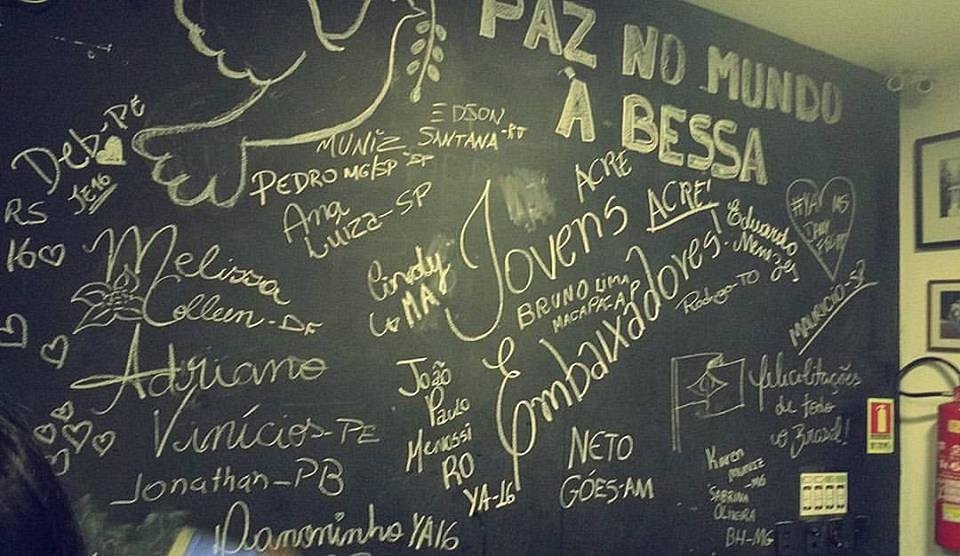 PAZ NO MUNDO
À BESSA
EDSON
SANTANA
MUNIZ
PEDRO MG/SP
Deb-PE
JE16
RS
16
Ana
Luiza-SP
ACRE
ACRE!
Jovens
Embaixadores!
Eduardo
Menezes
Melissa
Colleen-DF
Cindy
MA
BRUNO LIMA
MACAPÁ, AP
Rodrigo-TO
MAURICIO-SP
Adriano
Vinícios-PE
Jonathan-PB
João
Paulo
Menossi
RO
YA-16
NETO
GÓES-AM
felicitações
de todo
o Brasil!
Karen
MUNIZ
-MG
SABRINA
OLIVEIRA
BH-MG
YA16